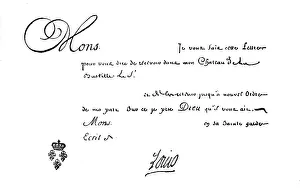 Mons. Je vous fais cette Lettre
pour vous dire de recevoir dans mon Château de la
Bastille le S.
et l'y retenir jusqu'à nouvel Ordre
de ma part. Sur ce je prie Dieu qu'il vous ait
Mons. en sa Sainte garde.
Ecrit à
Louis